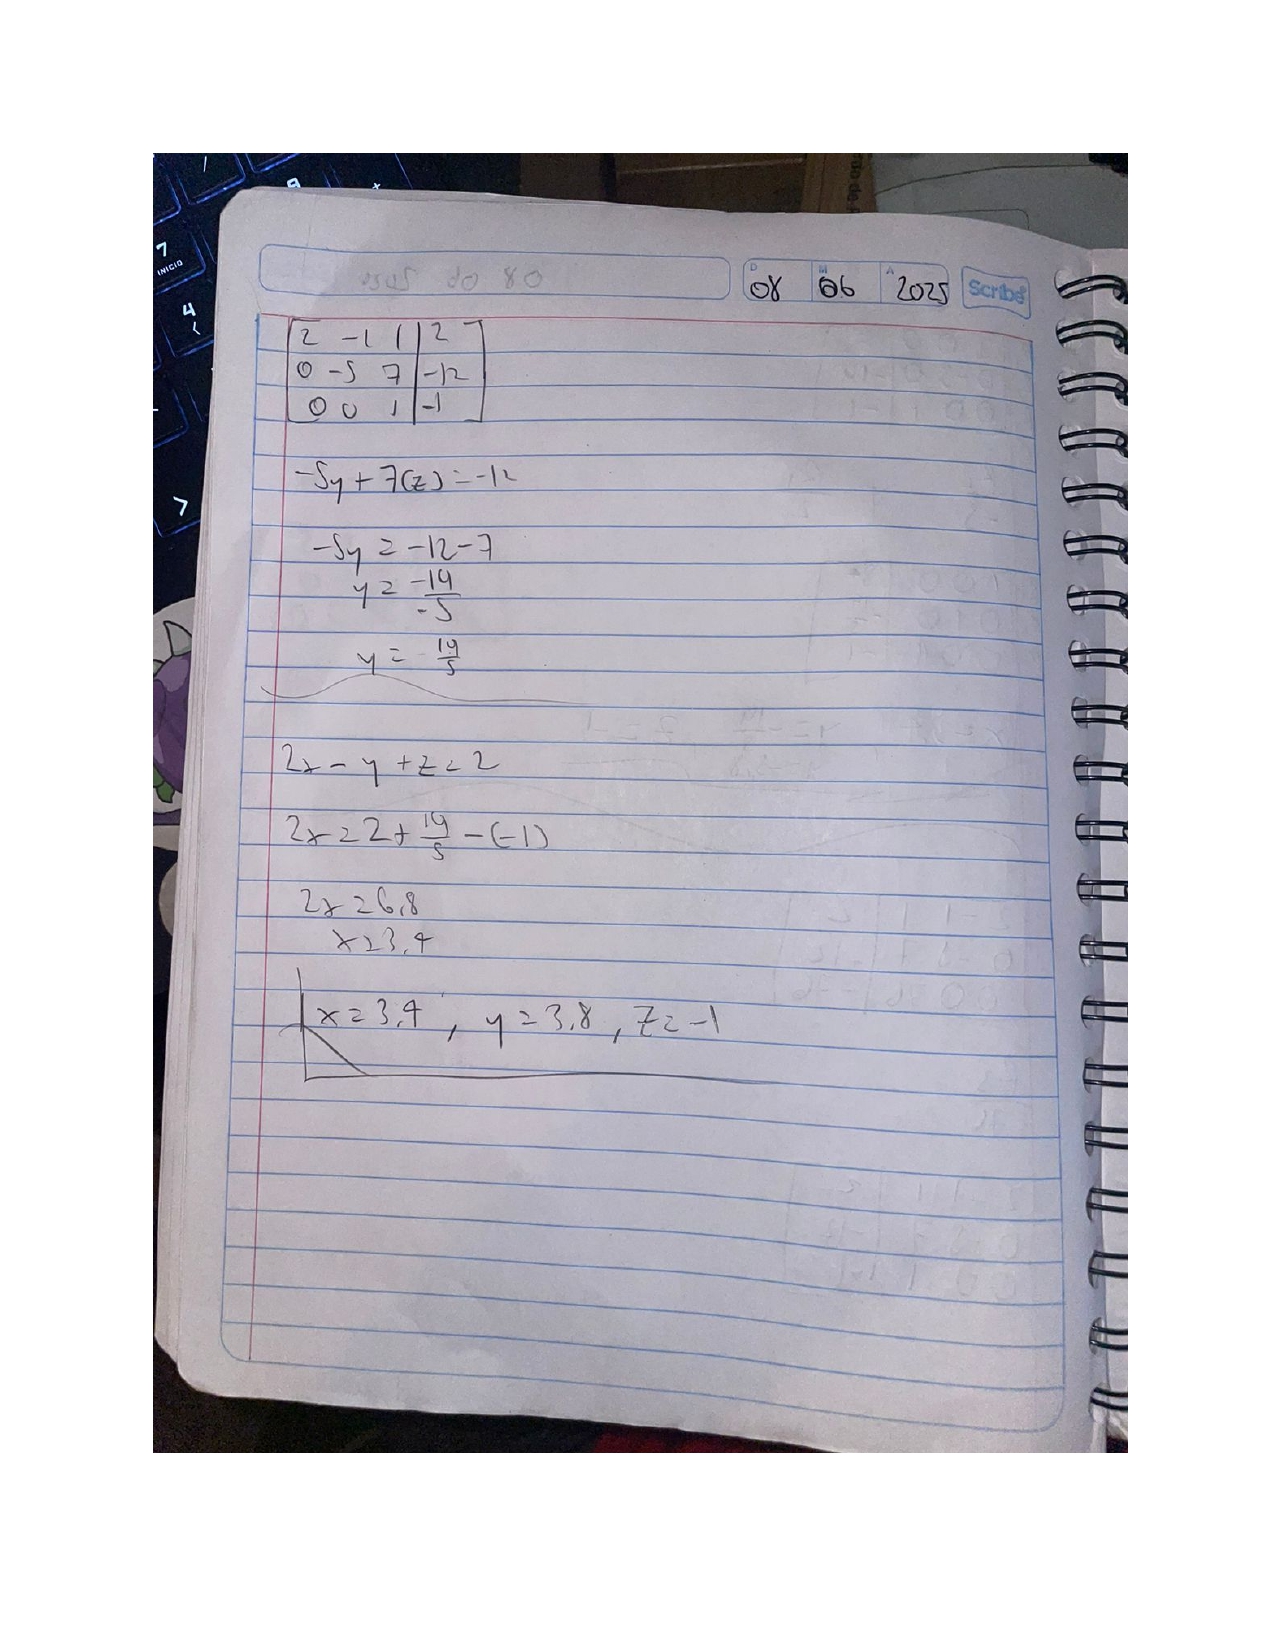 08 06 2025 Scribe
2 -1 1 | 2
0 -5 7 | -12
0 0 1 | -1
-5y + 7(z) = -12
-5y = -12 - 7
y = -19/-5
y = 19/5
2x - y + z = 2
2x = 2 + 19/5 - (-1)
2x = 6,8
x = 3,4
x = 3,4 , y = 3,8 , z = -1
7
INICIO
4